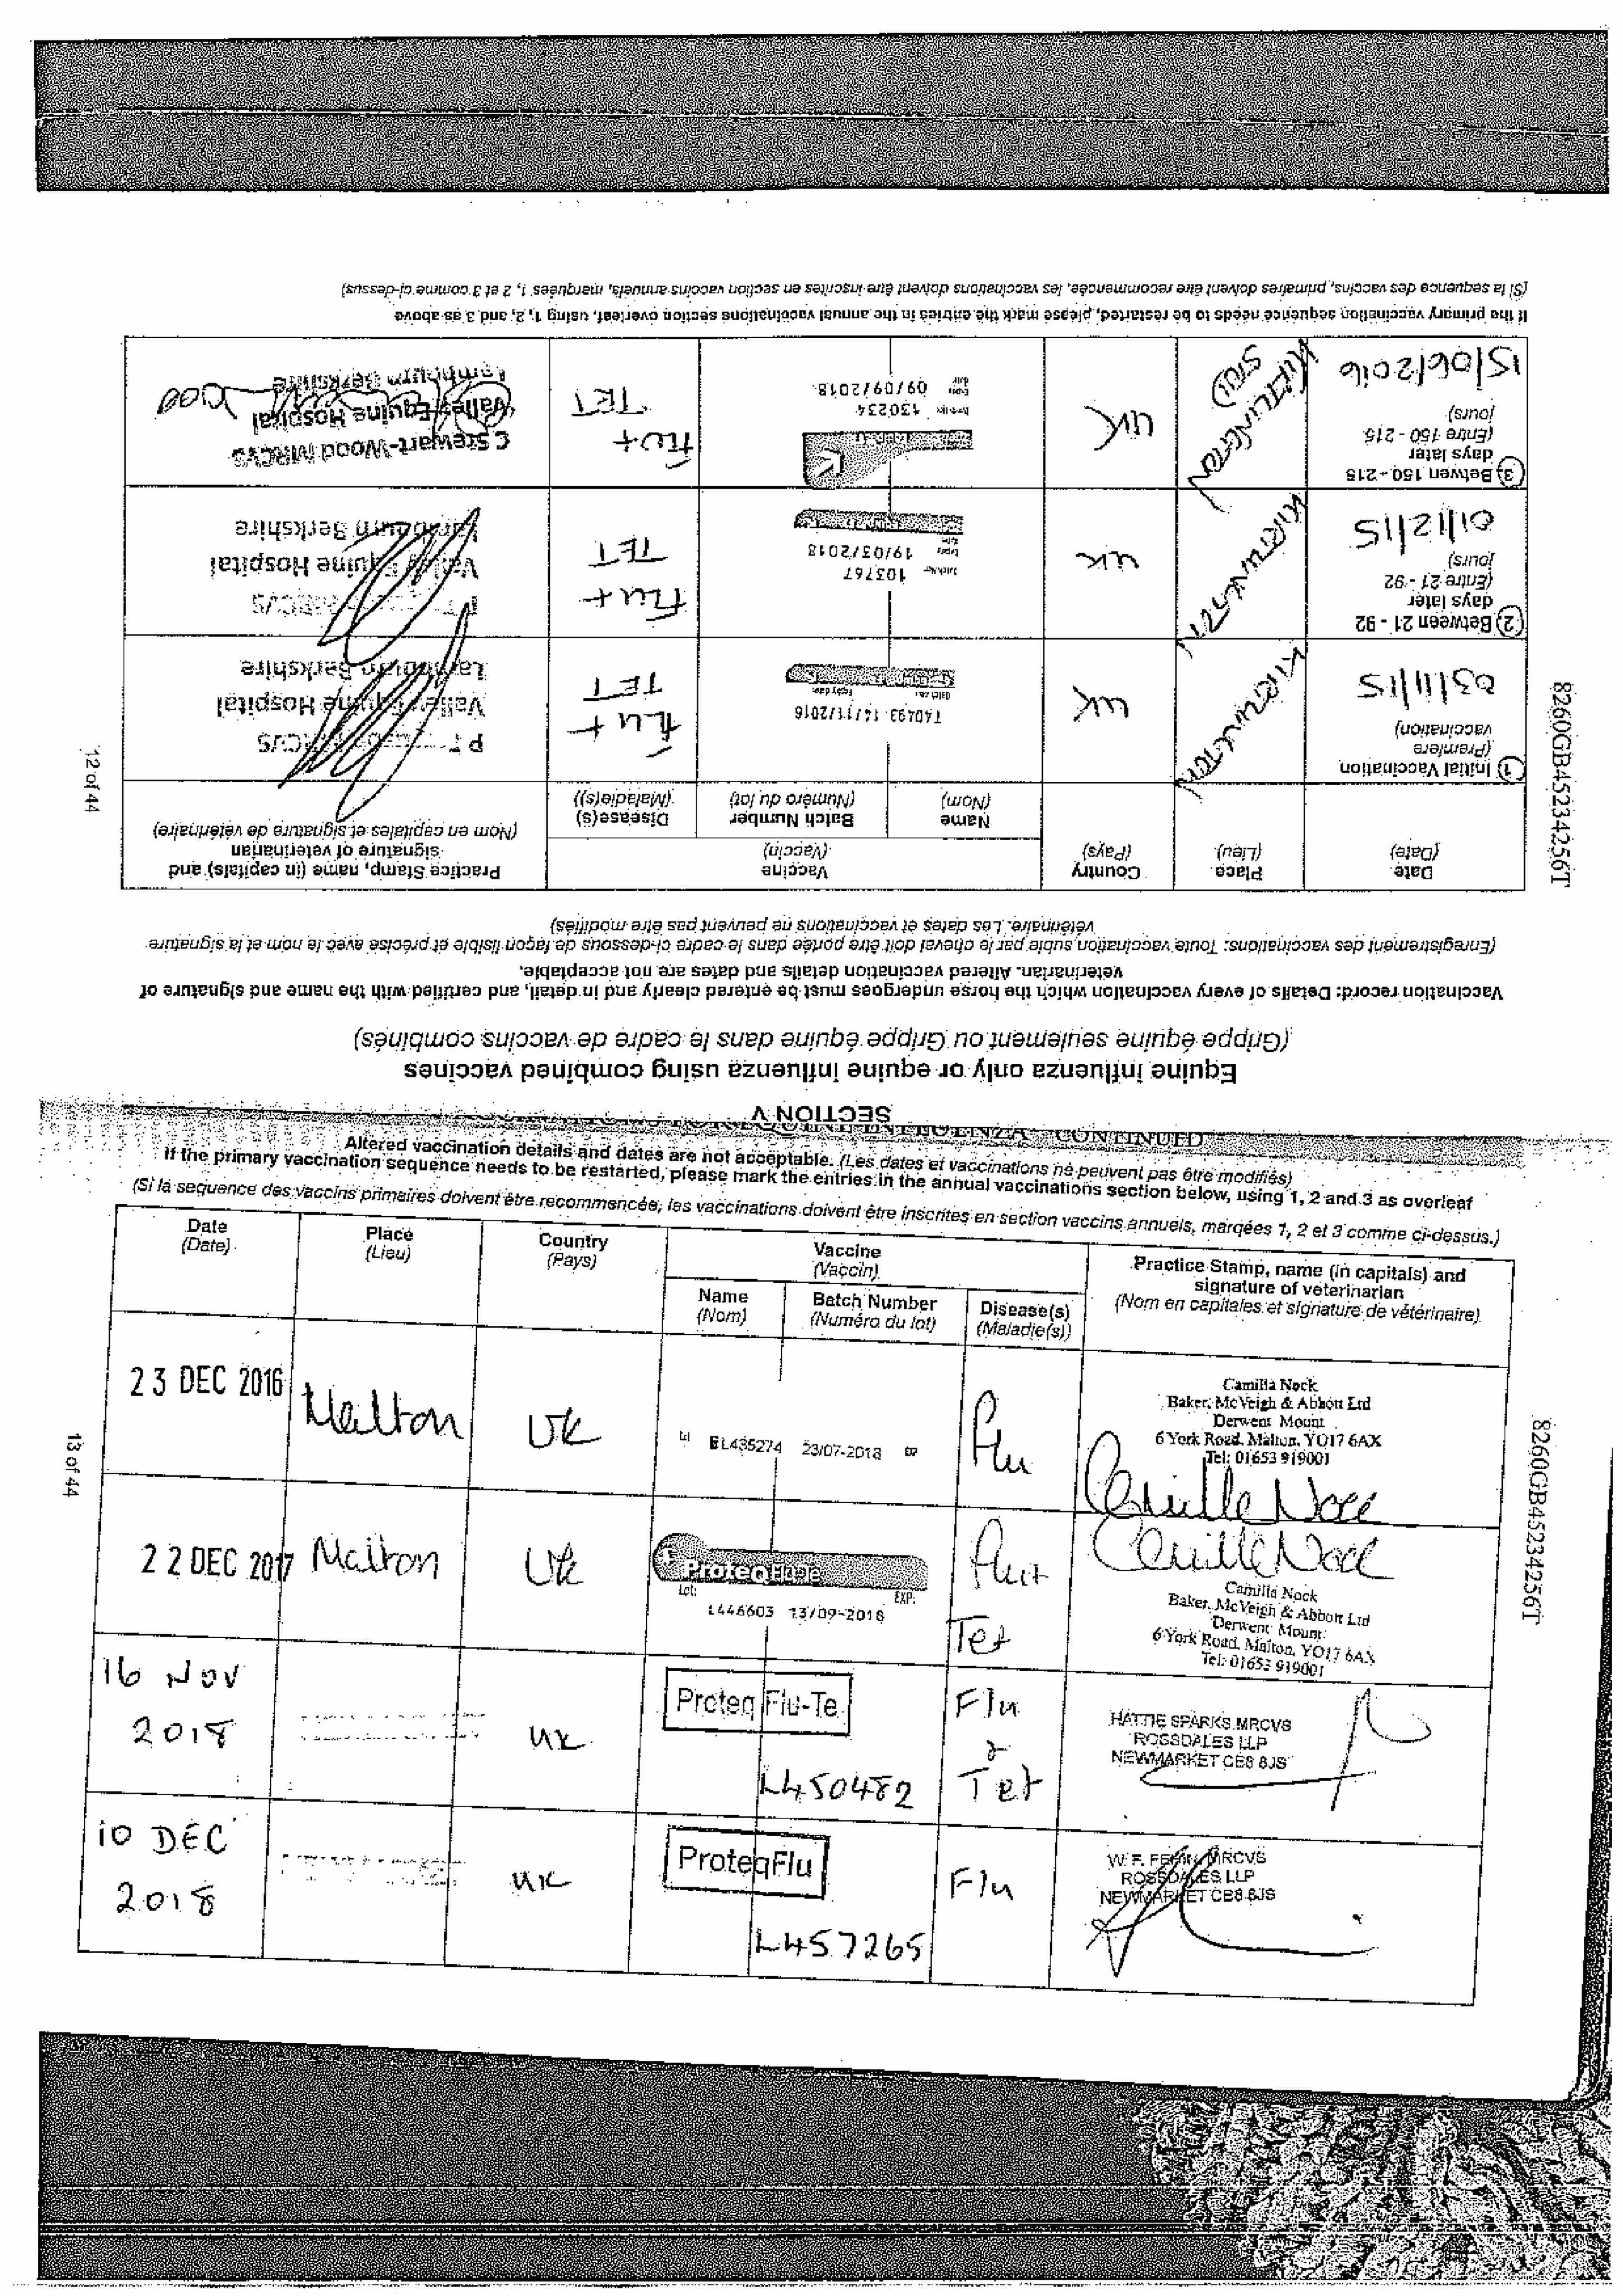 SECTION V
Equine influenza only or equine influenza using combined vaccines
(Grippe équine seulement ou Grippe équine dans le cadre de vaccins combinés)
Vaccination record: Details of every vaccination which the horse undergoes must be entered clearly and in detail, and certified with the name and signature of
veterinarian. Altered vaccination details and dates are not acceptable.
(Enregistrement des vaccinations: Toute vaccination subie par le cheval doit être portée dans le cadre ci-dessous de façon lisible et précise avec le nom et la signature
vétérinaire. Les dates et vaccinations ne peuvent pas être modifiés)
8260GB45234256T
Date
(Date)
Place
(Lieu)
Country
(Pays)
Vaccine
(Vaccin)
Name
(Nom)
Batch Number
(Numéro du lot)
Disease(s)
(Maladie(s))
Practice Stamp, name (in capitals) and
signature of veterinarian
(Nom en capitales et signature de vétérinaire)
1 Initial Vaccination
(Premiere
vaccination)
03/11/15
UK
T40493 14/11/2016
FLU +
TET
Valley Equine Hospital
Lambourn Berkshire
2 Between 21 - 92
days later
(Entre 21 - 92
jours)
01/12/15
UK
103767
19/03/2018
FLU +
TET
Valley Equine Hospital
Lambourn Berkshire
3 Betwen 150 - 215
days later
(Entre 150 - 215
jours)
15/06/2016
KIRTLINGTON
STUD
UK
130234
09/09/2018
FLU +
TET
C Stewart-Wood MRCVS
Valley Equine Hospital
Lambourn Berkshire
If the primary vaccination sequence needs to be restarted, please mark the entries in the annual vaccinations section overleaf, using 1, 2, and 3 as above
(Si la sequence des vaccins, primaires doivent être recommencée, les vaccinations doivent être inscrites en section vaccins annuels, marquées 1, 2 et 3 comme ci-dessus)
12 of 44
CONTINUED
Altered vaccination details and dates are not acceptable. (Les dates et vaccinations ne peuvent pas être modifiés)
If the primary vaccination sequence needs to be restarted, please mark the entries in the annual vaccinations section below, using 1, 2 and 3 as overleaf
(Si la sequence des vaccins primaires doivent être recommencée, les vaccinations doivent être inscrites en section vaccins annuels, marqées 1, 2 et 3 comme ci-dessus.)
Date
(Date)
Place
(Lieu)
Country
(Pays)
Vaccine
(Vaccin)
Name
(Nom)
Batch Number
(Numéro du lot)
Disease(s)
(Maladie(s))
Practice Stamp, name (in capitals) and
signature of veterinarian
(Nom en capitales et signature de vétérinaire)
23 DEC 2016
Malton
UK
EL435274 23/07-2018
Flu
Camilla Nock
Baker, McVeigh & Abbott Ltd
Derwent Mount
6 York Road, Malton, YO17 6AX
Tel: 01653 919001
Camilla Nock
22 DEC 2017
Malton
UK
ProteqFlu-Te
Lot:
EXP:
L446603 13/09-2018
Flu+
Tet
Camilla Nock
Camilla Nock
Baker, McVeigh & Abbott Ltd
Derwent Mount
6 York Road, Malton, YO17 6AX
Tel: 01653 919001
16 NOV
2018
UK
Proteq Flu-Te
L450482
Flu
&
Tet
HATTIE SPARKS MRCVS
ROSSDALES LLP
NEWMARKET CB8 8JS
10 DEC
2018
UK
ProteqFlu
L457265
Flu
MRCVS
ROSSDALES LLP
NEWMARKET CB8 8JS
13 of 44
8260GB45234256T